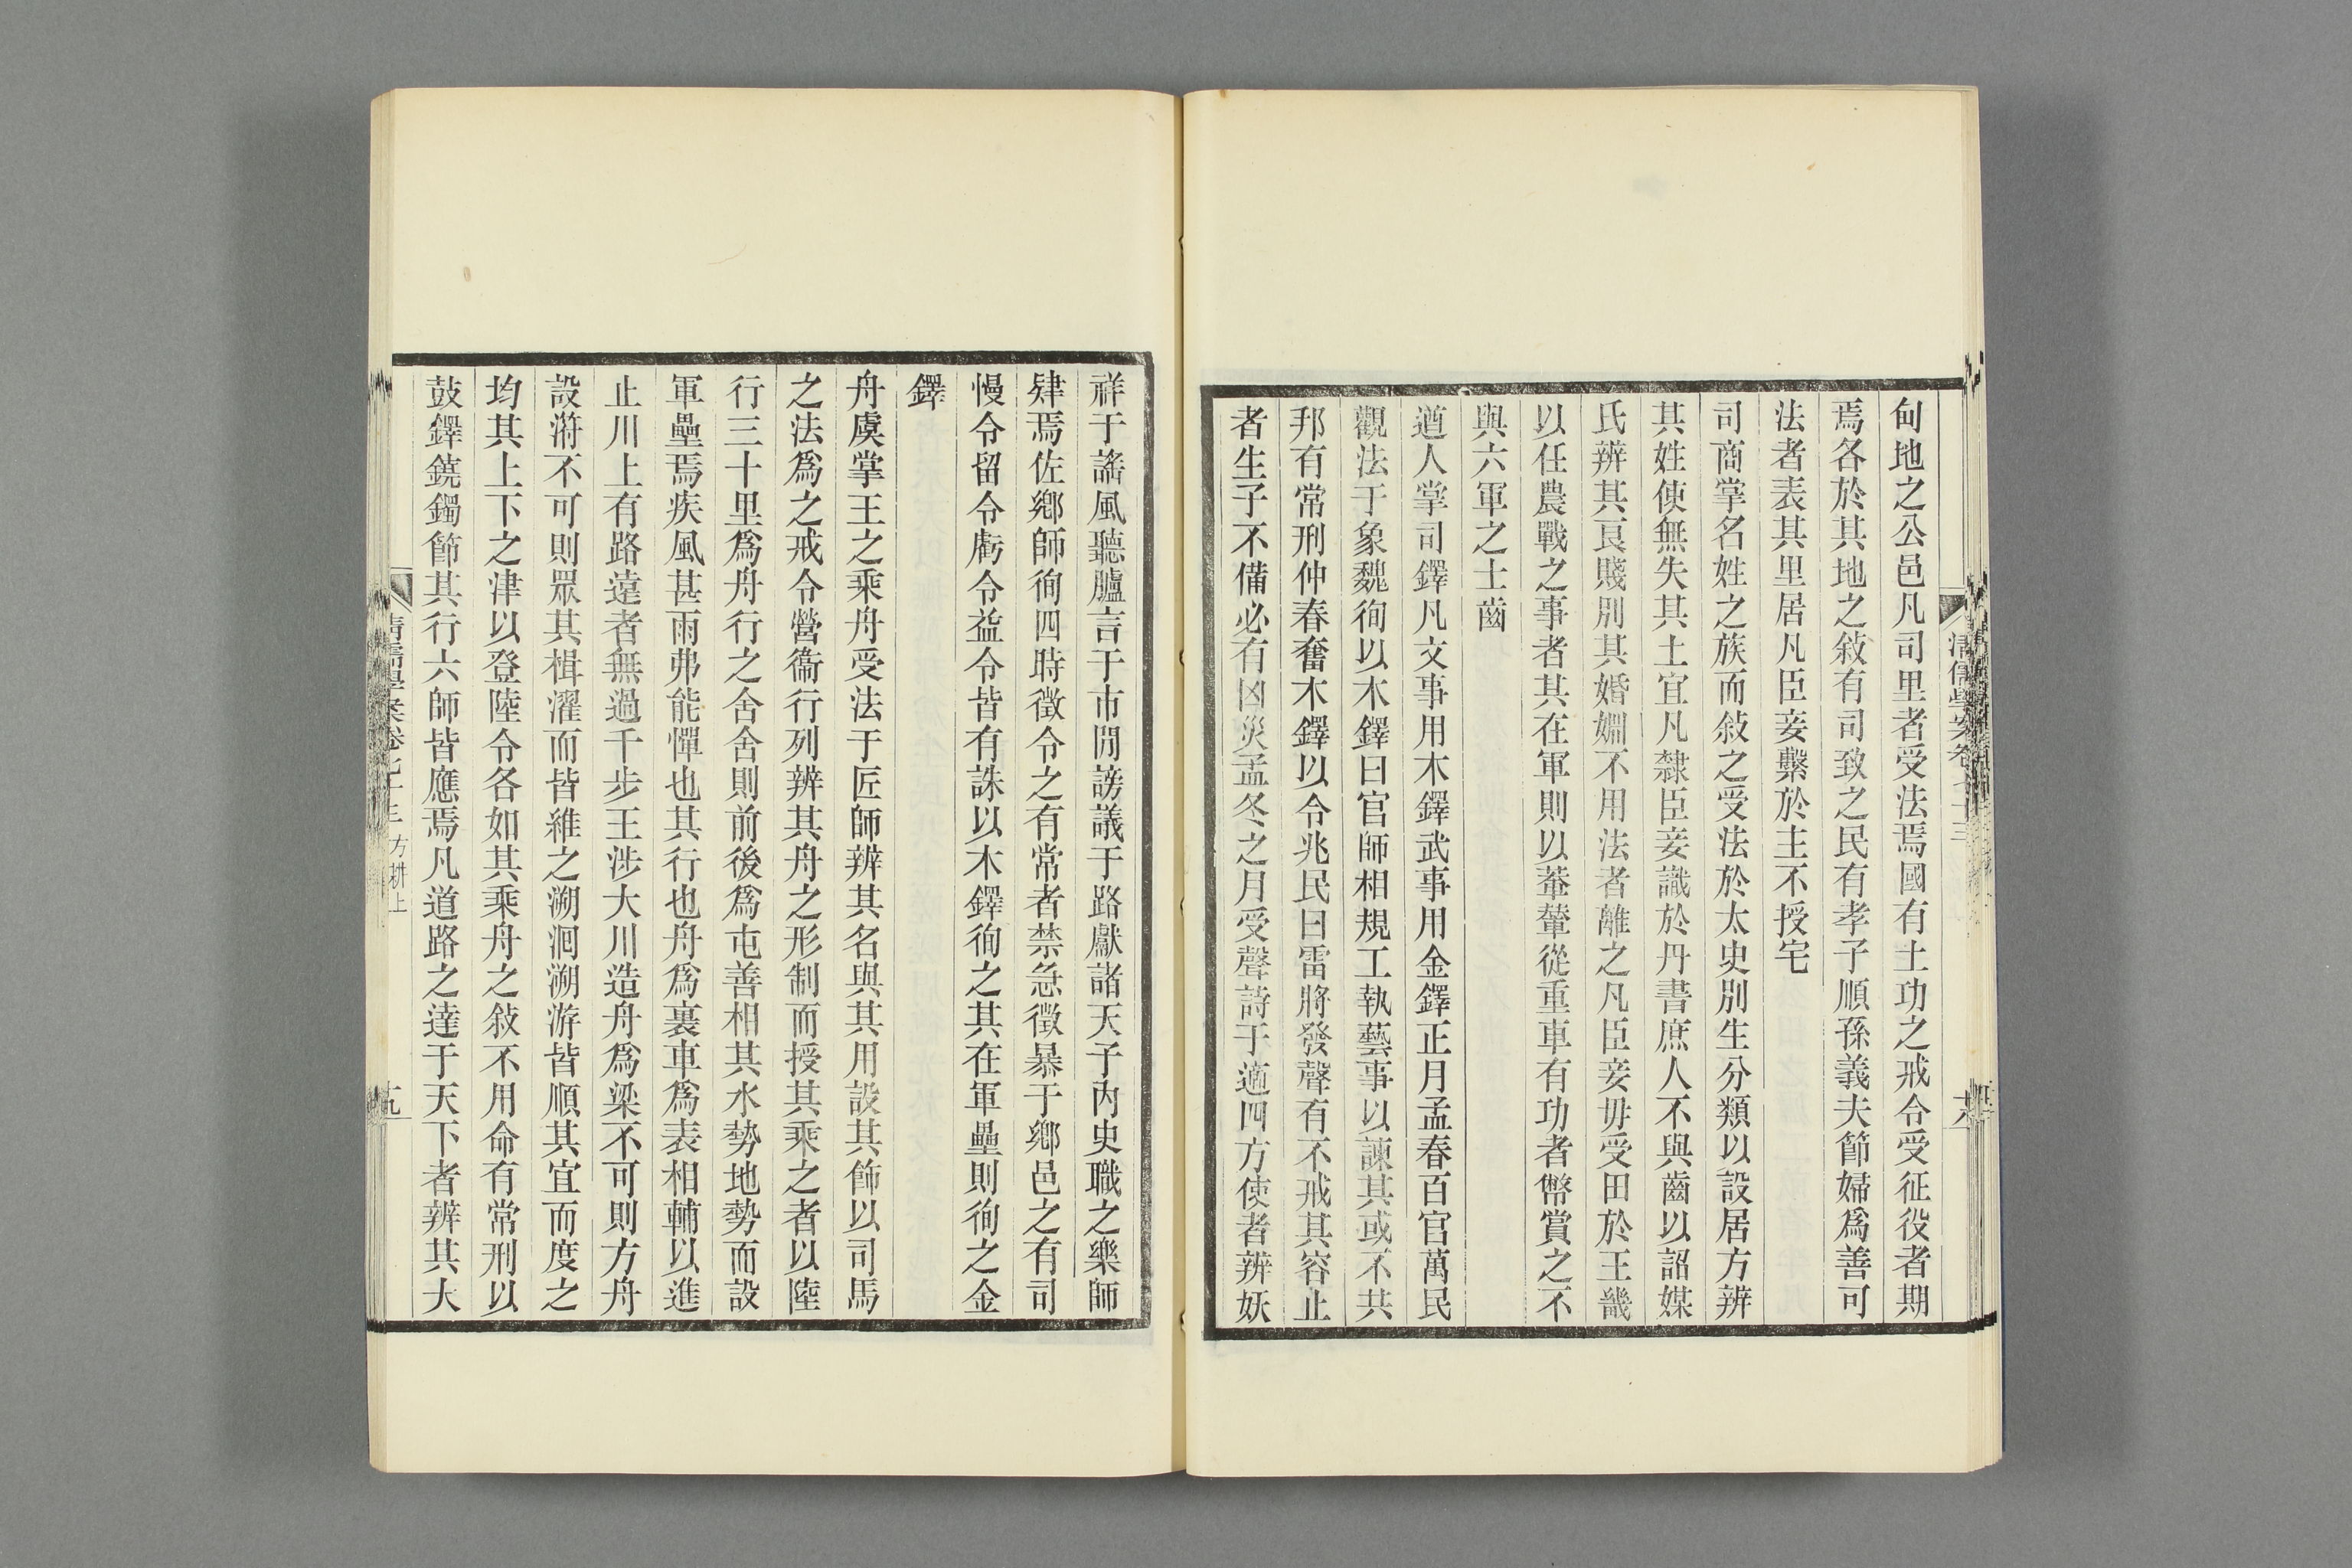 甸地之公邑凡司里者受法焉國有土功之戒令受征役者期
焉各於其地之敍有司致之民有孝子順孫義夫節婦爲善可
法者表其里居凡臣妾繫於主不授宅
司商掌名姓之族而敍之受法於太史別生分類以設居方辨
其姓使無失其土宜凡隸臣妾識於丹書庶人不與齒以詔媒
氏辨其良賤別其婚姻不用法者離之凡臣妾毋受田於王畿
以任農戰之事者其在軍則以輂輦從重車有功者幣賞之不
與六軍之士齒
遒人掌司鐸凡文事用木鐸武事用金鐸正月孟春百官萬民
觀法于象魏徇以木鐸曰官師相規工執藝事以諫其或不共
邦有常刑仲春奮木鐸以令兆民曰雷將發聲有不戒其容止
者生子不備必有凶災孟冬之月受聲詩于適四方使者辨妖
清儒學案卷七十三
十八
祥于謠風聽臚言于市閒謗議于路獻諸天子內史職之樂師
肄焉佐鄉師徇四時徵令之有常者禁急徵暴于鄉邑之有司
慢令留令虧令益令皆有誅以木鐸徇之其在軍壘則徇之金
鐸
舟虞掌王之乘舟受法于匠師辨其名與其用設其飾以司馬
之法爲之戒令營衞行列辨其舟之形制而授其乘之者以陸
行三十里爲舟行之舍舍則前後爲屯善相其水勢地勢而設
軍壘焉疾風甚雨弗能憚也其行也舟爲裏車爲表相輔以進
止川上有路遠者無過千步王涉大川造舟爲梁不可則方舟
設泭不可則眾其楫濯而皆維之溯洄溯游皆順其宜而度之
均其上下之津以登陸令各如其乘舟之敍不用命有常刑以
鼓鐸鐃鐲節其行六師皆應焉凡道路之達于天下者辨其大
清儒學案卷七十三 方耕上
十九